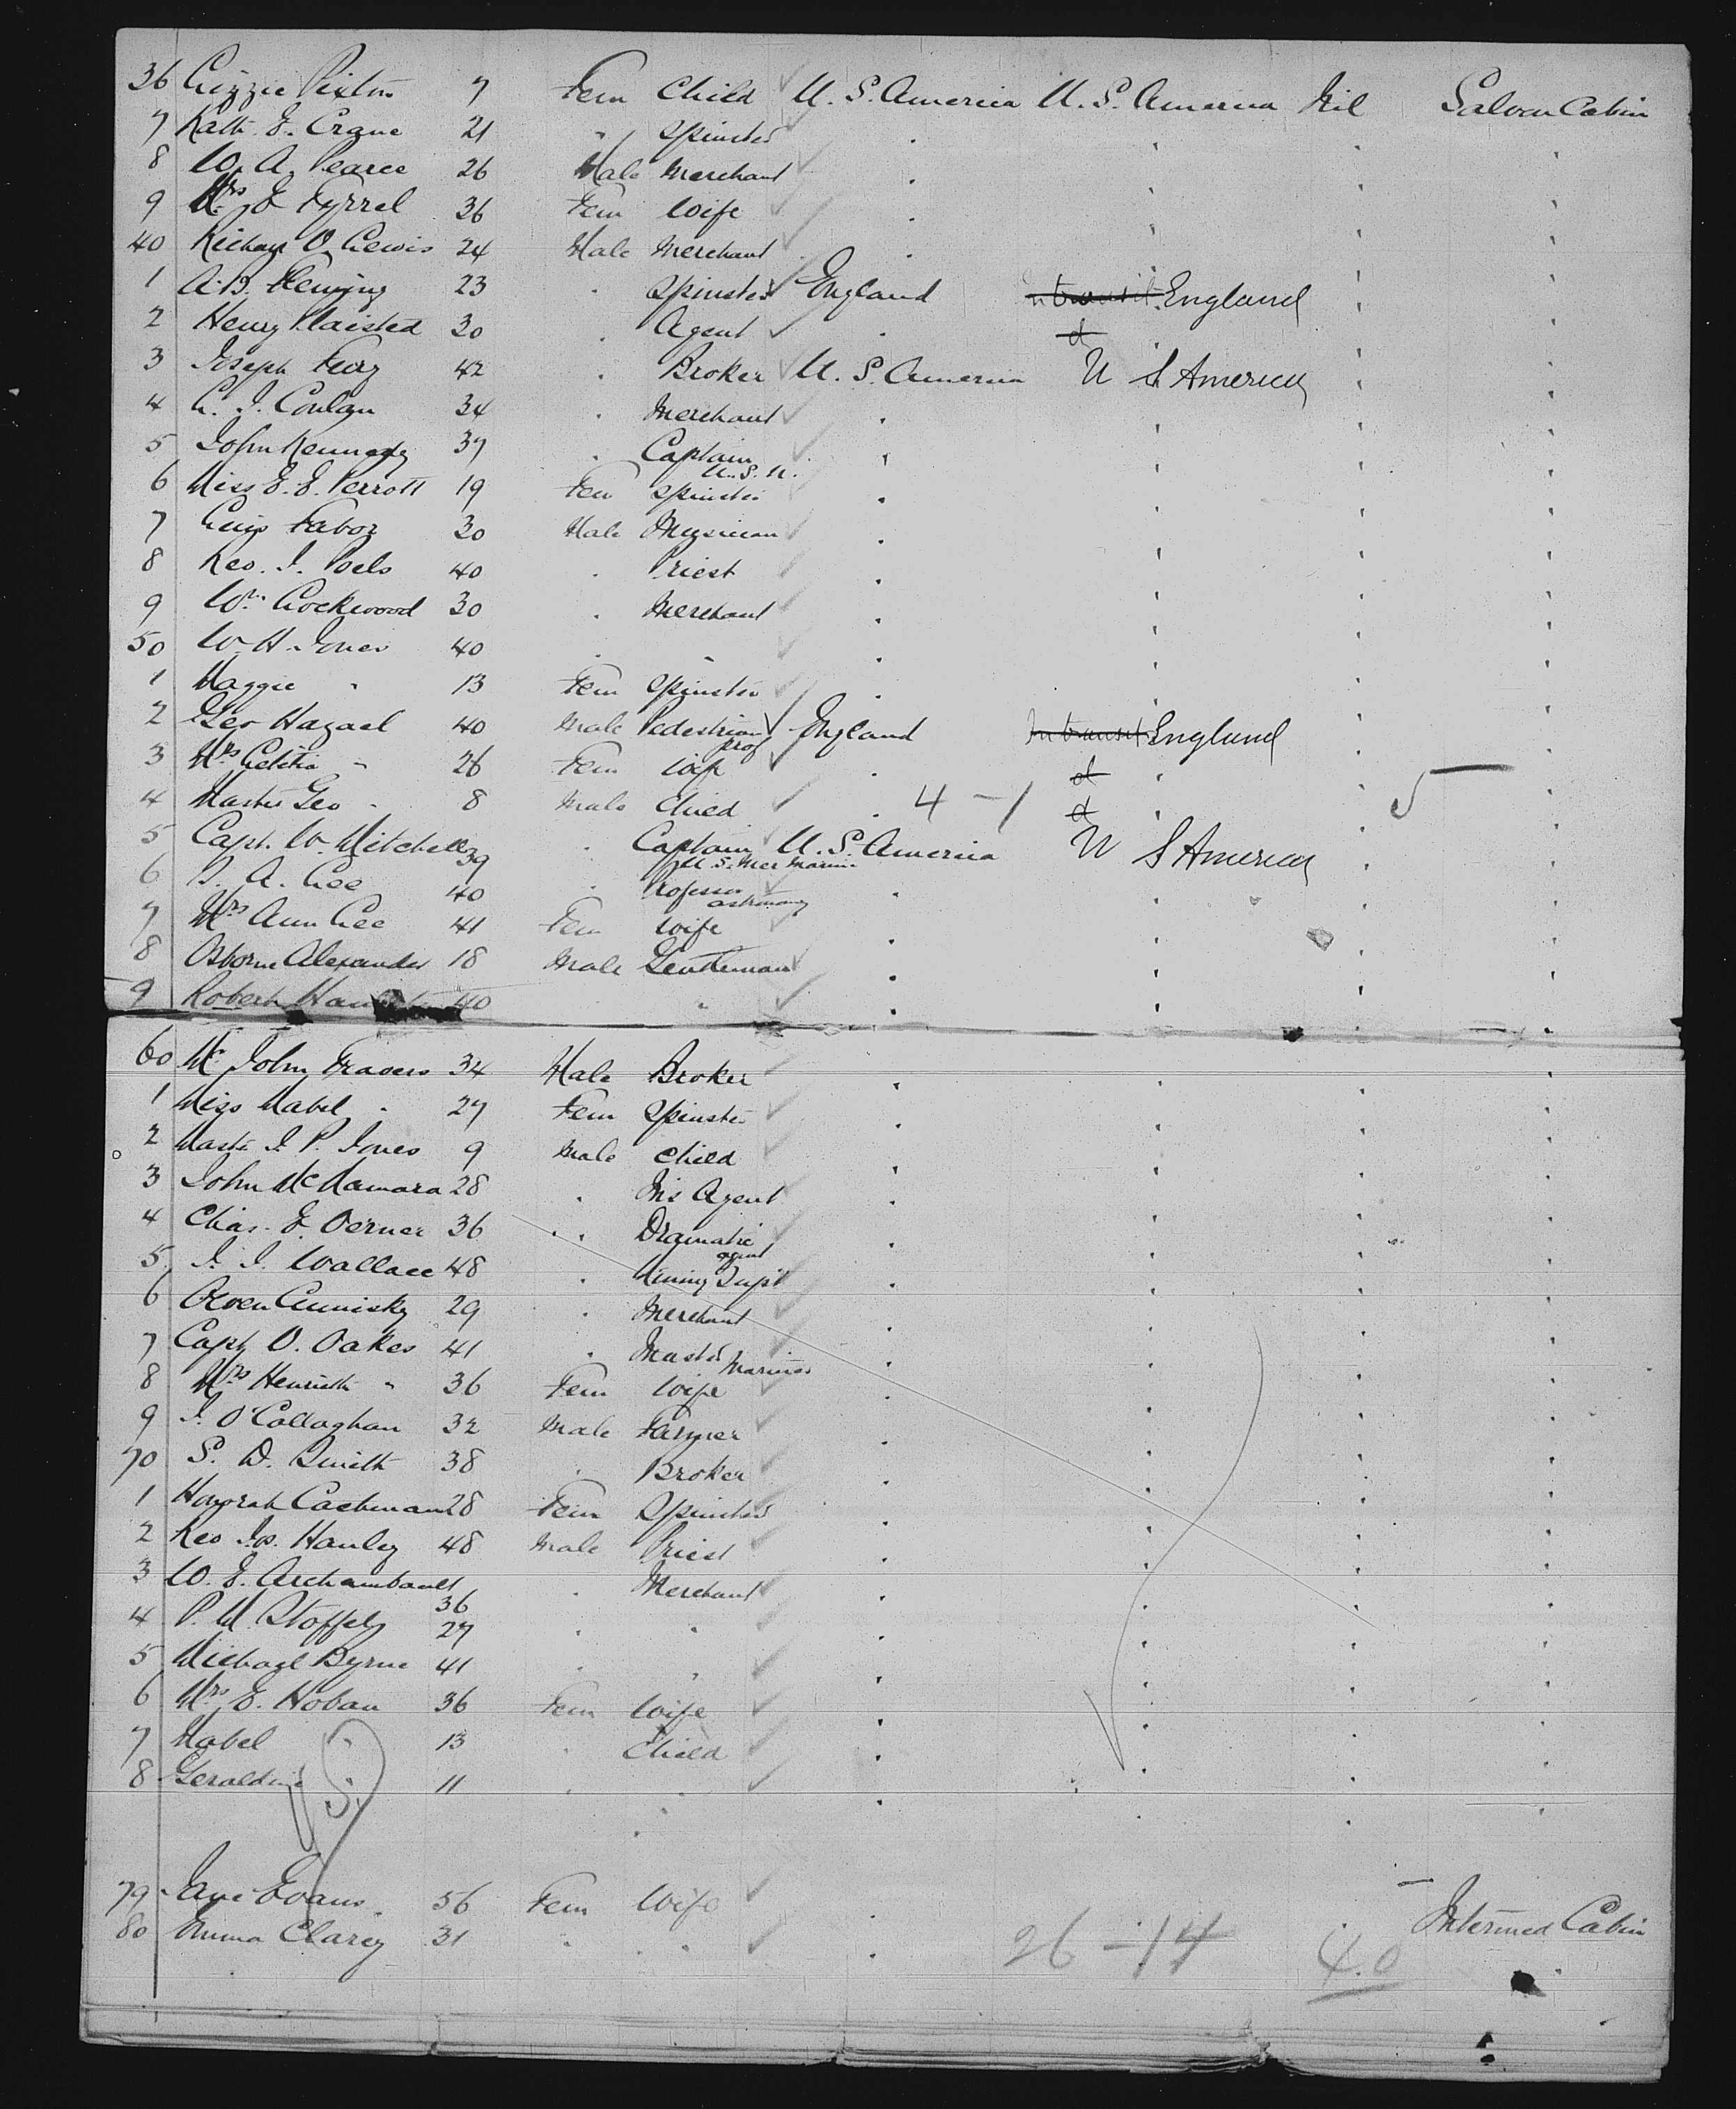 36 Lizzie Pixton 7 Fem Child U. S. America U. S. America Nil Saloon Cabin
7 Kath. E. Crane 21 " Spinster
8 W. A. Pearce 26 Male Merchant
9 Mrs E Tyrrel 36 Fem Wife
40 Richard V. Lewis 24 Male Merchant
1 A. B. Fleming 23 " Spinster England In transit England
2 Henry Plaisted 30 " Agent " do
3 Joseph 42 " Broker U. S. America U S America
4 C. J. Conlan 34 " Merchant
5 John Kennedy 37 " Captain
U. S. N.
6 Miss E. E. Perrott 19 Fem Spinster
7 Luigi Fabor 30 Male Musician
8 Rev. J. Poels 40 " Priest
9 Wm Lockwood 30 " Merchant
50 W. H. Jones 40 " "
1 Maggie " 13 Fem Spinster
2 Geo Hazael 40 Male Pedestrian England In transit England
prof
3 Mrs Letitia " 26 Fem Wife " do "
4 Master Geo " 8 Male Child " 4 - 1 do " 5
5 Capt. W. Mitchell 39 " Captain U. S. America U S America
U. S. Mer Marine
6 A. Lee 40 " Professor
astronomy
7 Mrs Ann Lee 41 Fem Wife
8 Osborne Alexander 18 Male Gentleman
9 Robert 40 "
60 Mr John Travers 34 Male Broker
1 Miss Mabel " 27 Fem Spinster
2 Mastr J. P. Jones 9 Male Child
3 John McNamara 28 " Ins Agent
4 Chas. E. Verner 36 " Dramatic
agent
5 J. J. Wallace 48 " Mining Supt
6 Owen Cumisky 29 " Merchant
7 Capt O. Oakes 41 " Master
Mariner
8 Mrs Henrietta " 36 Fem Wife
9 J. O'Callaghan 32 Male Farmer
70 S. D. Smith 38 " Broker
1 Honorah Cashman 28 Fem Spinster
2 Rev Jas. Hanley 48 Male Priest
3 W. E. Archambault 36 " Merchant
4 P. M. Stoffel 27 " "
5 Michael Byrne 41 " "
6 Mrs E. Hoban 36 Fem Wife
7 Mabel " 13 " Child
8 Geraldine " 11 " "
79 Jane Evans 56 Fem Wife Intermed Cabin
80 Emma Clarey 31 " " 26 - 14 40